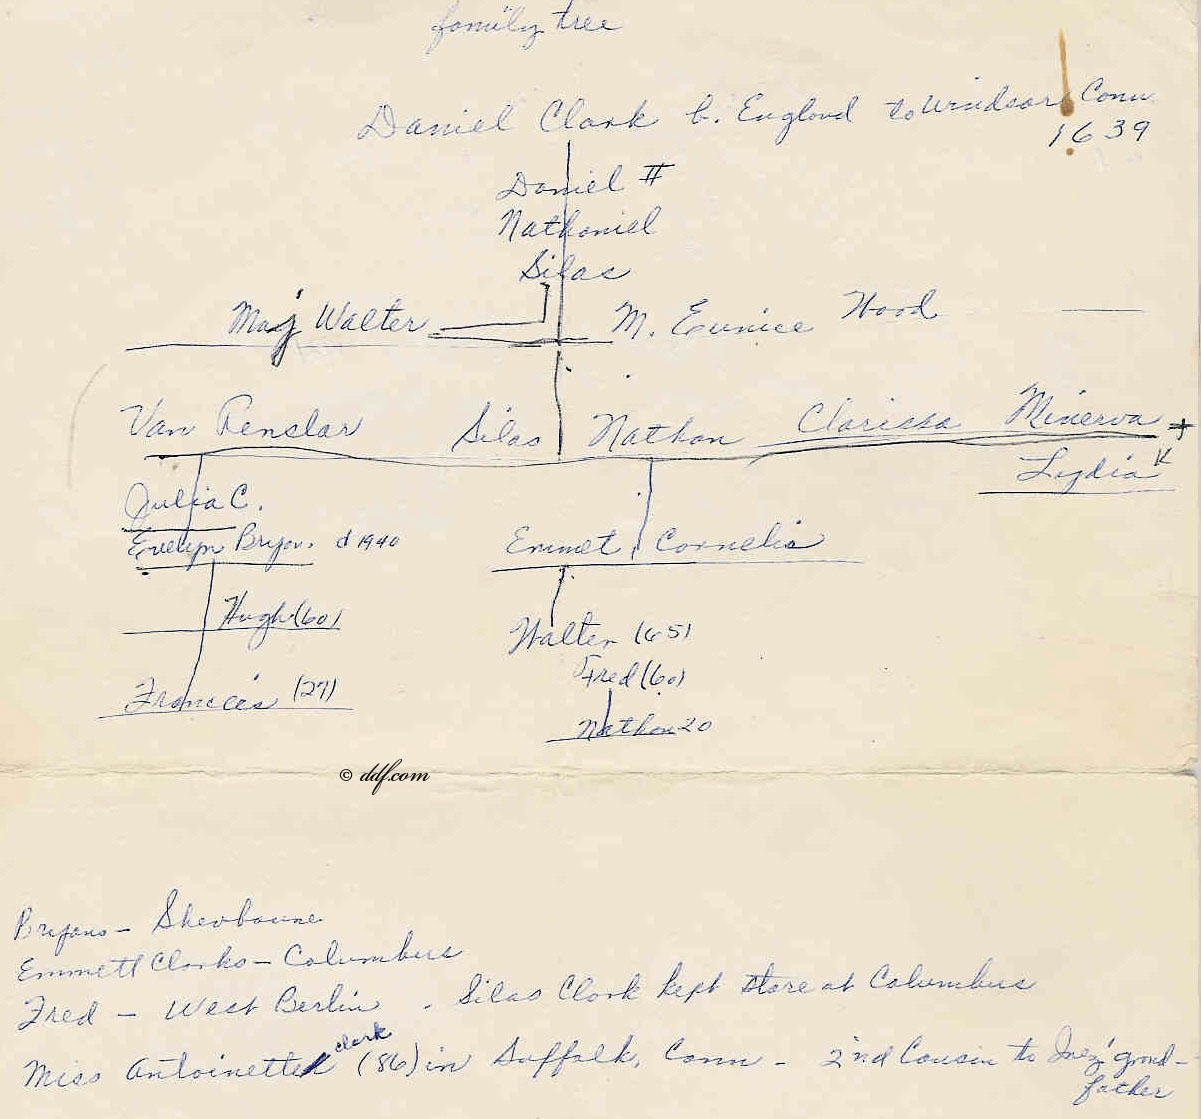 family tree
Daniel Clark b. England to Windsor Conn
1639
Daniel II
Nathaniel
Silas
Maj Walter M. Eunice Wood
Van Renslar Silas Nathan Clarissa Minerva +
Lydia K
Julia C.
Evelyn Bryan. d 1940 Emmet, Cornelia
Hugh (60)
Walter (65)
Fred (60)
Frances (27)
Nathan 20
© ddf.com
Bryans - Sherbourne
Emmett Clarks - Columbus
Fred - West Berlin. Silas Clark kept store at Columbus
clark
Miss Antoinette (86) in Suffolk, Conn - 2nd Cousin to Inez' grand-
father